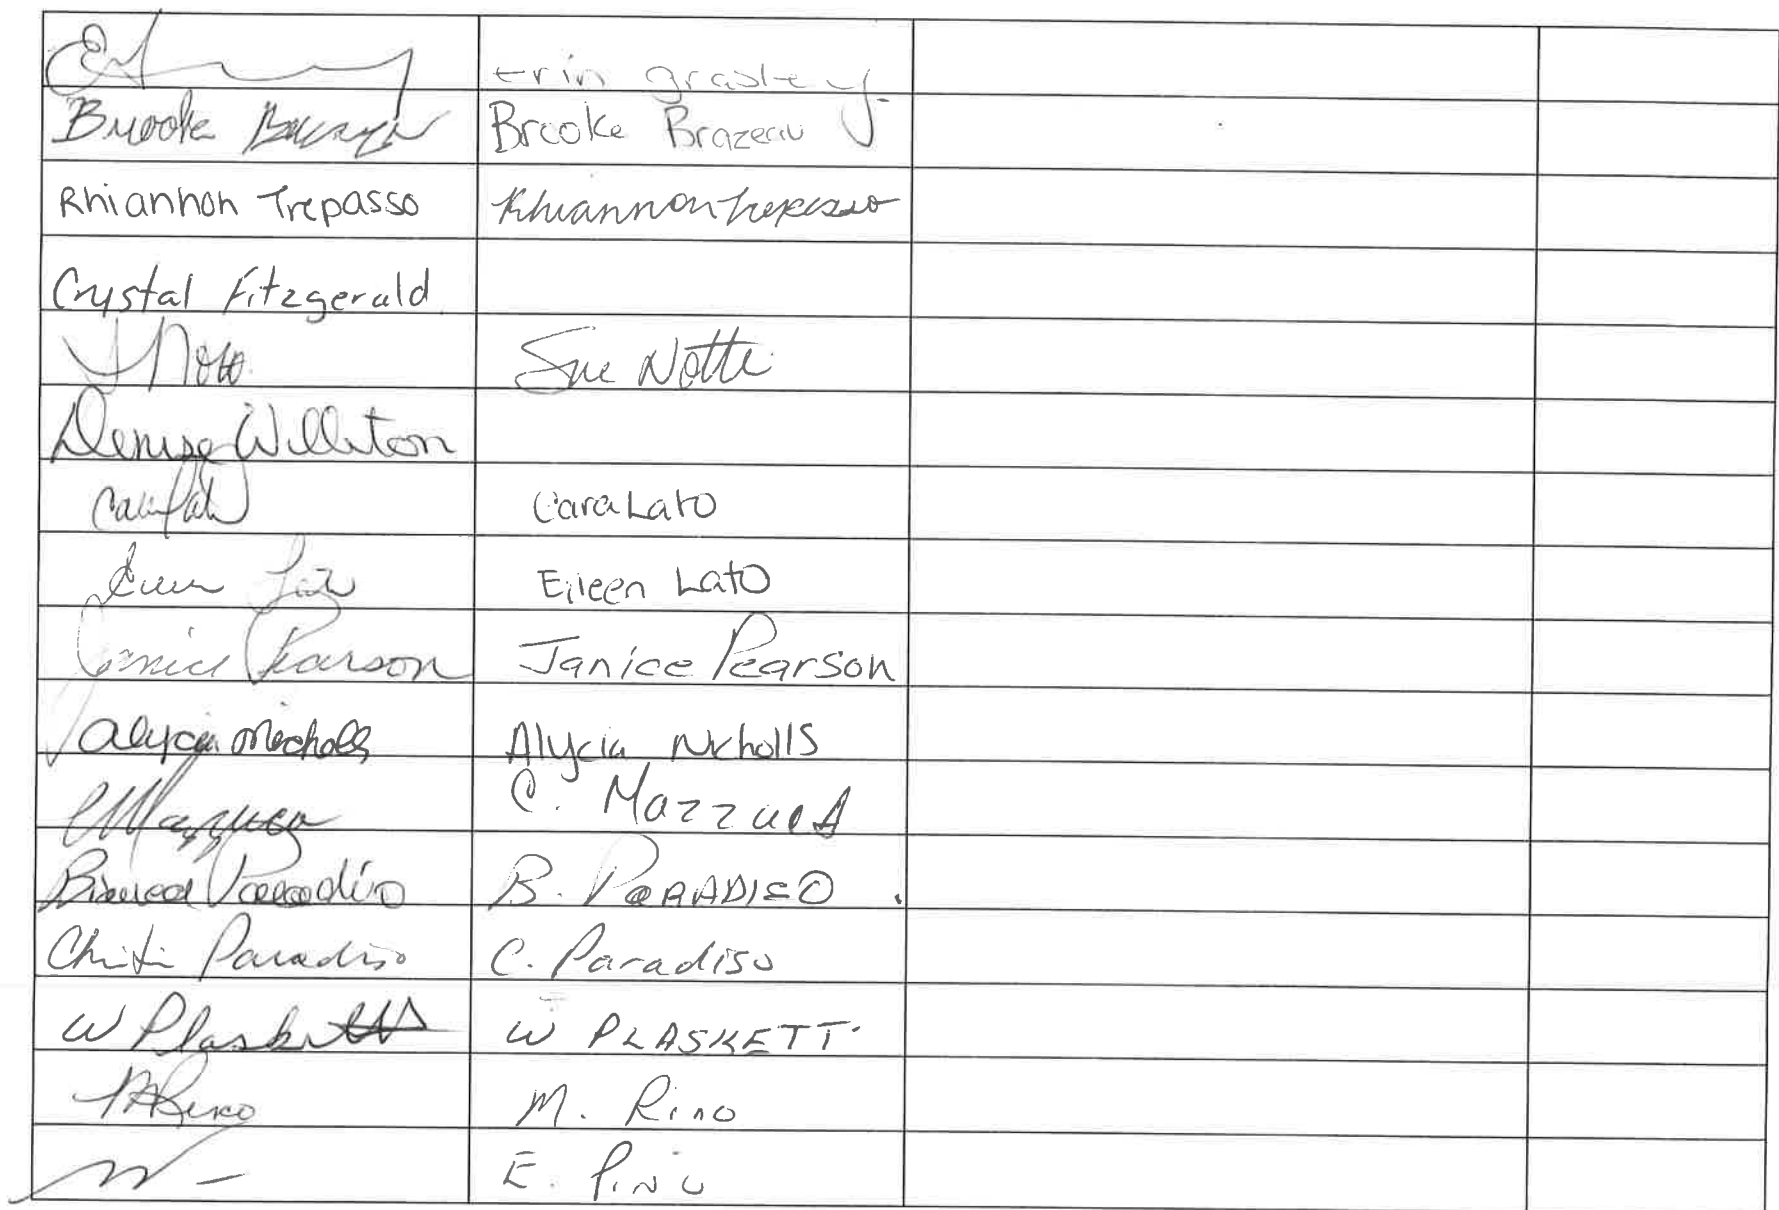 Erin grasley
Brooke Brazeau Brooke Brazeau
Rhiannon Trepasso Rhiannon Trepasso
Crystal Fitzgerald
Sue Notte
Denise Williston
Cara Lato
Eileen Lato
Janice Pearson Janice Pearson
Alycia Nicholls Alycia Nicholls
C Mazzuca C. MAzzucA
Bianca Paradiso B. PARADISO
Christi Paradiso C. Paradiso
W Plaskett W PLASKETT
M Rino M. Rino
E. Pino